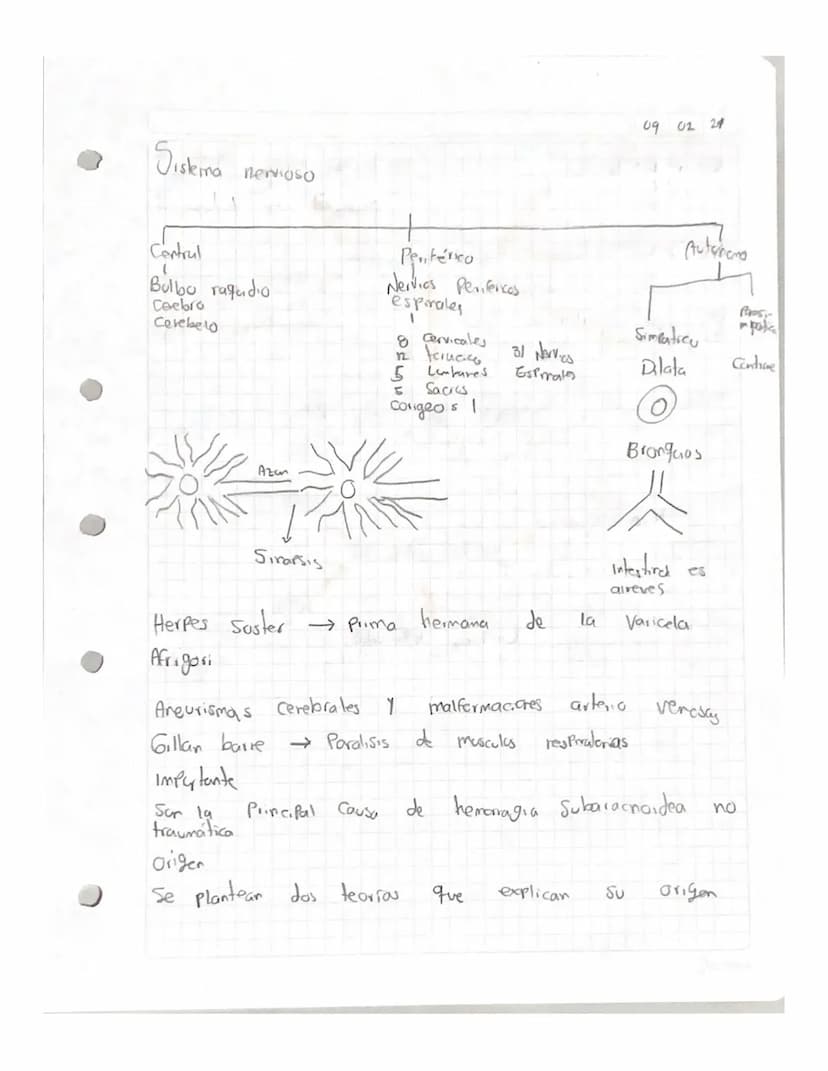 09 02 21
Sistema nervioso
Central
Bulbo raquidio
Cerebro
Cerebelo
Periférico
Nervios Perifericos
espirales
8 Cervicales
12
5 Lumbares
5 Sacros
1
31 Nervios
Espirales
Autónomo
Simpatico
Dilata
Bronquios
Intestinal es
alreves
Axon
Sinapsis
Herpes Soster → Prima hermana de la Varicela
Afrigori
Aneurismas cerebrales y malformaciones arterio venosas
Gillan barre → Paralisis de musculos respiratorias
Importante
Son la Principal Causa de hemorragia Subaracnoidea no
traumática
origen
Se plantean dos teorías que explican su origen